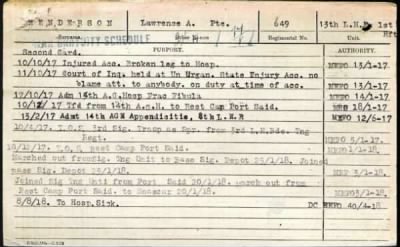 HENDERSON Lawrence A. Pte. 649 13th L.H. 1st
Surname. Regimental No.
SCHEDULE
PURPORT. AUTHORITY.
Second Card.
10/10/17 Injured Acc. Broken leg to Hosp. MEFO 13/1-17
11/10/17 Court of Inq. held at Un Urgan. State Injury Acc. no
blame att. to anybody. on duty at time of acc. MEFO 13/1-17
12/10/17 Adm 14th A.G.Hosp Frac Fibula MEFO 14/1-17
10/12/17 Tfd from 14th A.G.H. to Rest Camp Port Said. MEO 18/1-17
13/2/17 Admt 14th AGH Appendicitis, 8th L.H.R MEFO 12/6-17
T.O.S. 3rd Sig. Troop as Spr. from 3rd L.H.Bde. Tng
Regt. MEFO 5/1-17.
T.O.S. Rest Camp Port Said. 1-1-18.
Marched out from Sig. Tng Unit to Base Sig. Depot 25/1/18. Joined
Base Sig. Depot 25/1/18.
Joined Sig Tng Unit from Port Said 20/1/18. march out from
Rest Camp Port Said. to 20/1/18. MEFO 3/1-18.
8/8/18. To Hosp. Sick. DC MEFO 40/4-18